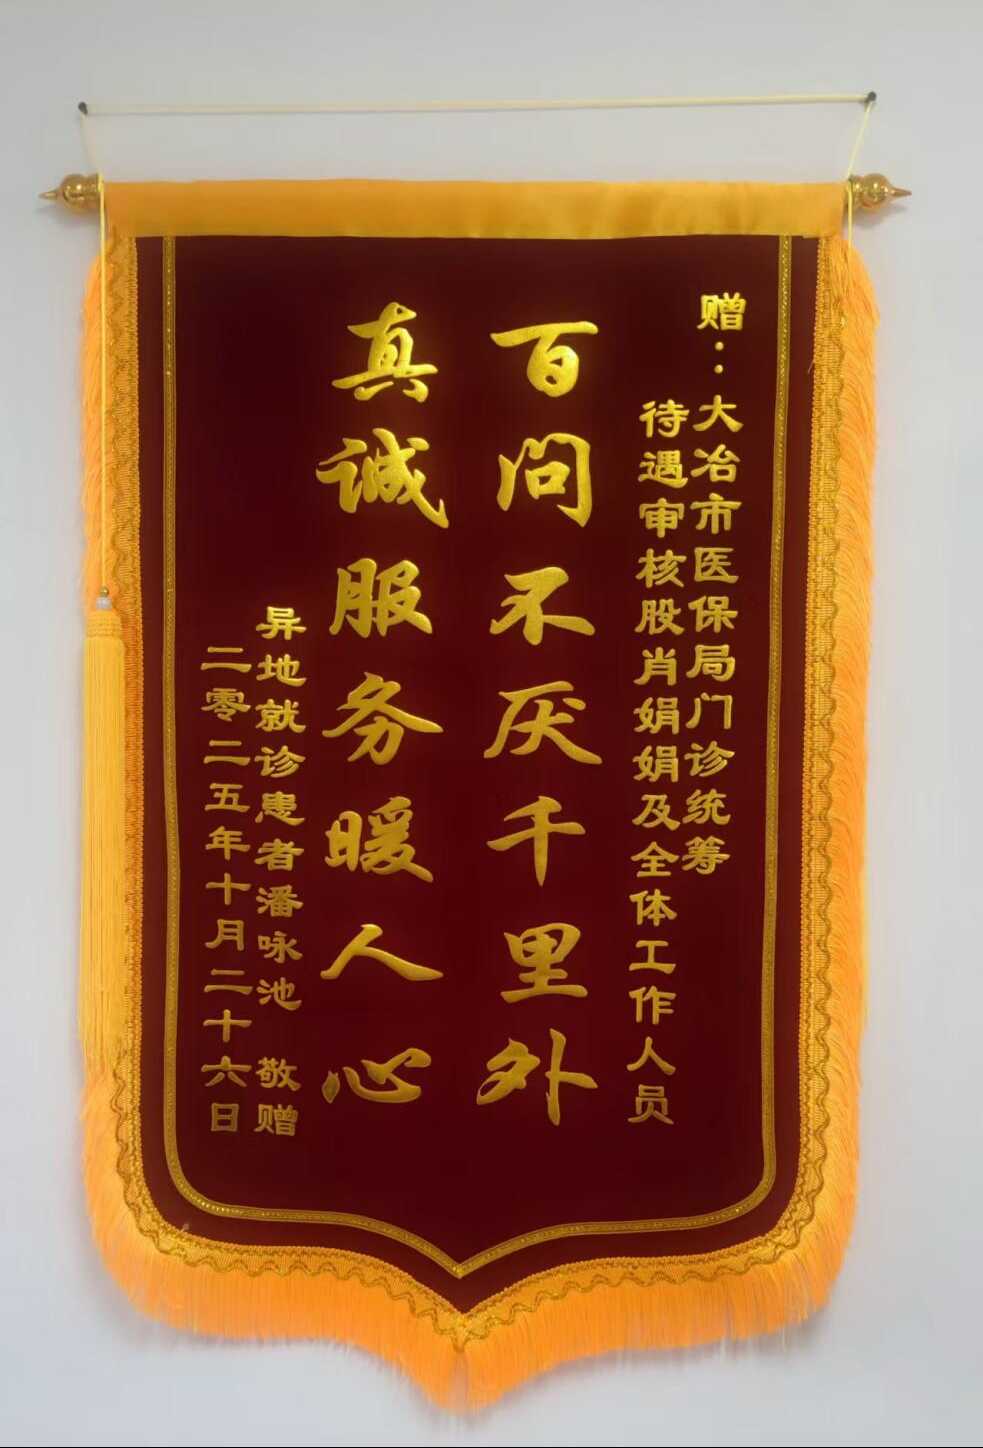 赠：大冶市医保局门诊统筹
待遇审核股肖娟娟及全体工作人员
百问不厌千里外
真诚服务暖人心
异地就诊患者潘咏池 敬赠
二零二五年十月二十六日